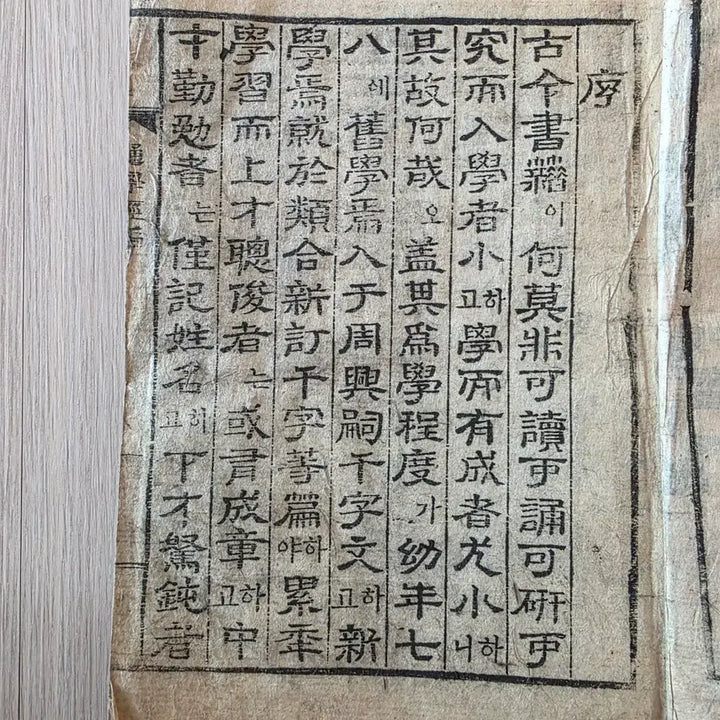 序
古今書籍이何莫非可讀可誦可硏可
究而入學者小하고學而有成者尤小하니
其故何哉오盖其爲學程度가幼年七
八세舊學焉入于周興嗣千字文하고新
學焉就於類合新訂千字等篇하야累年
學習而上才聰俊者는或君成章하고中
才勤勉者는僅記姓名하고下才駑鈍者